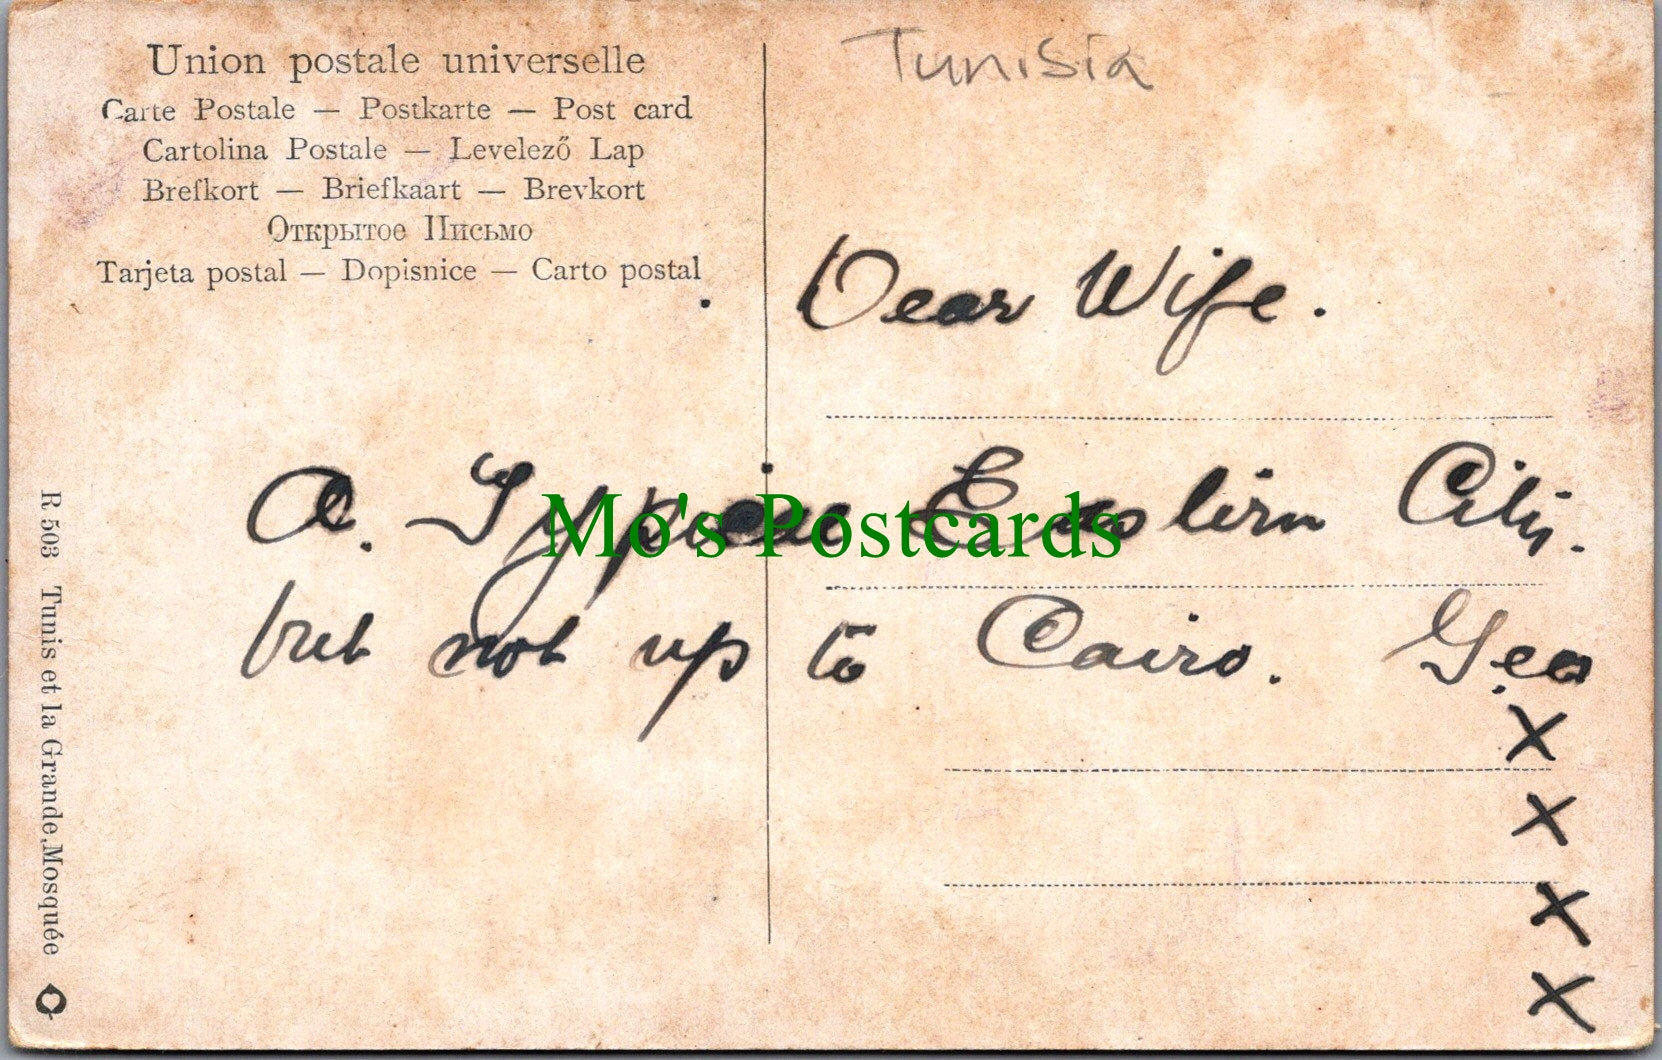 Union postale universelle
Carte Postale — Postkarte — Post card
Cartolina Postale — Levelező Lap
Brefkort — Briefkaart — Brevkort
Открытое Письмо
Tarjeta postal — Dopisnice — Carto postal
Tunisia
Dear Wife.
A. Typical Eastern City.
but not up to Cairo. Geo
X
X
X
X
R 503 Tunis et la Grande Mosquée
Mo's Postcards